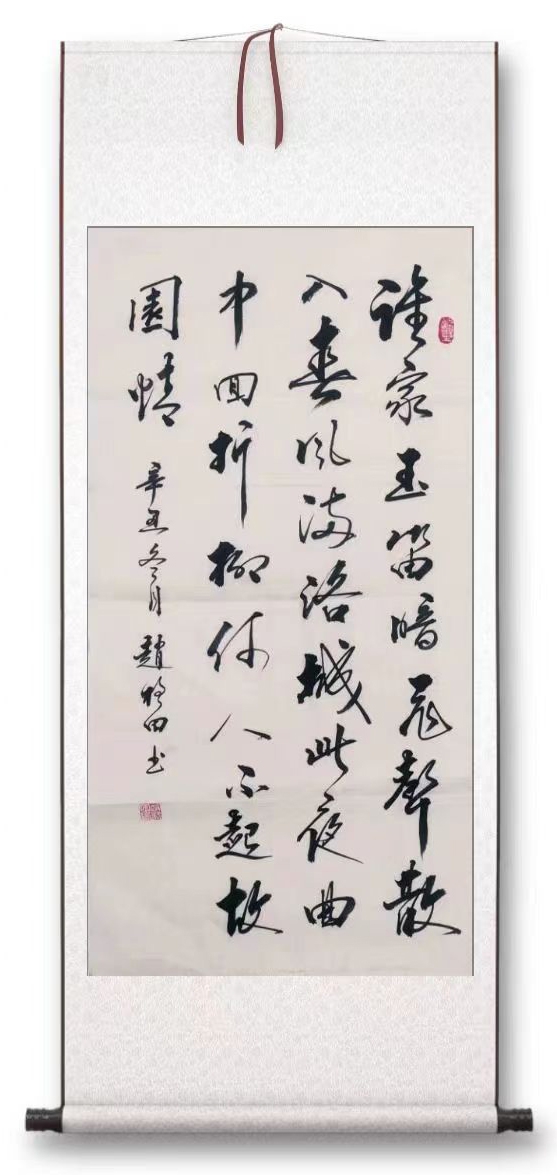 誰家玉笛暗飛聲散
入春风满洛城此夜曲
中回折柳何人不起故
園情
辛丑冬月 趙田书